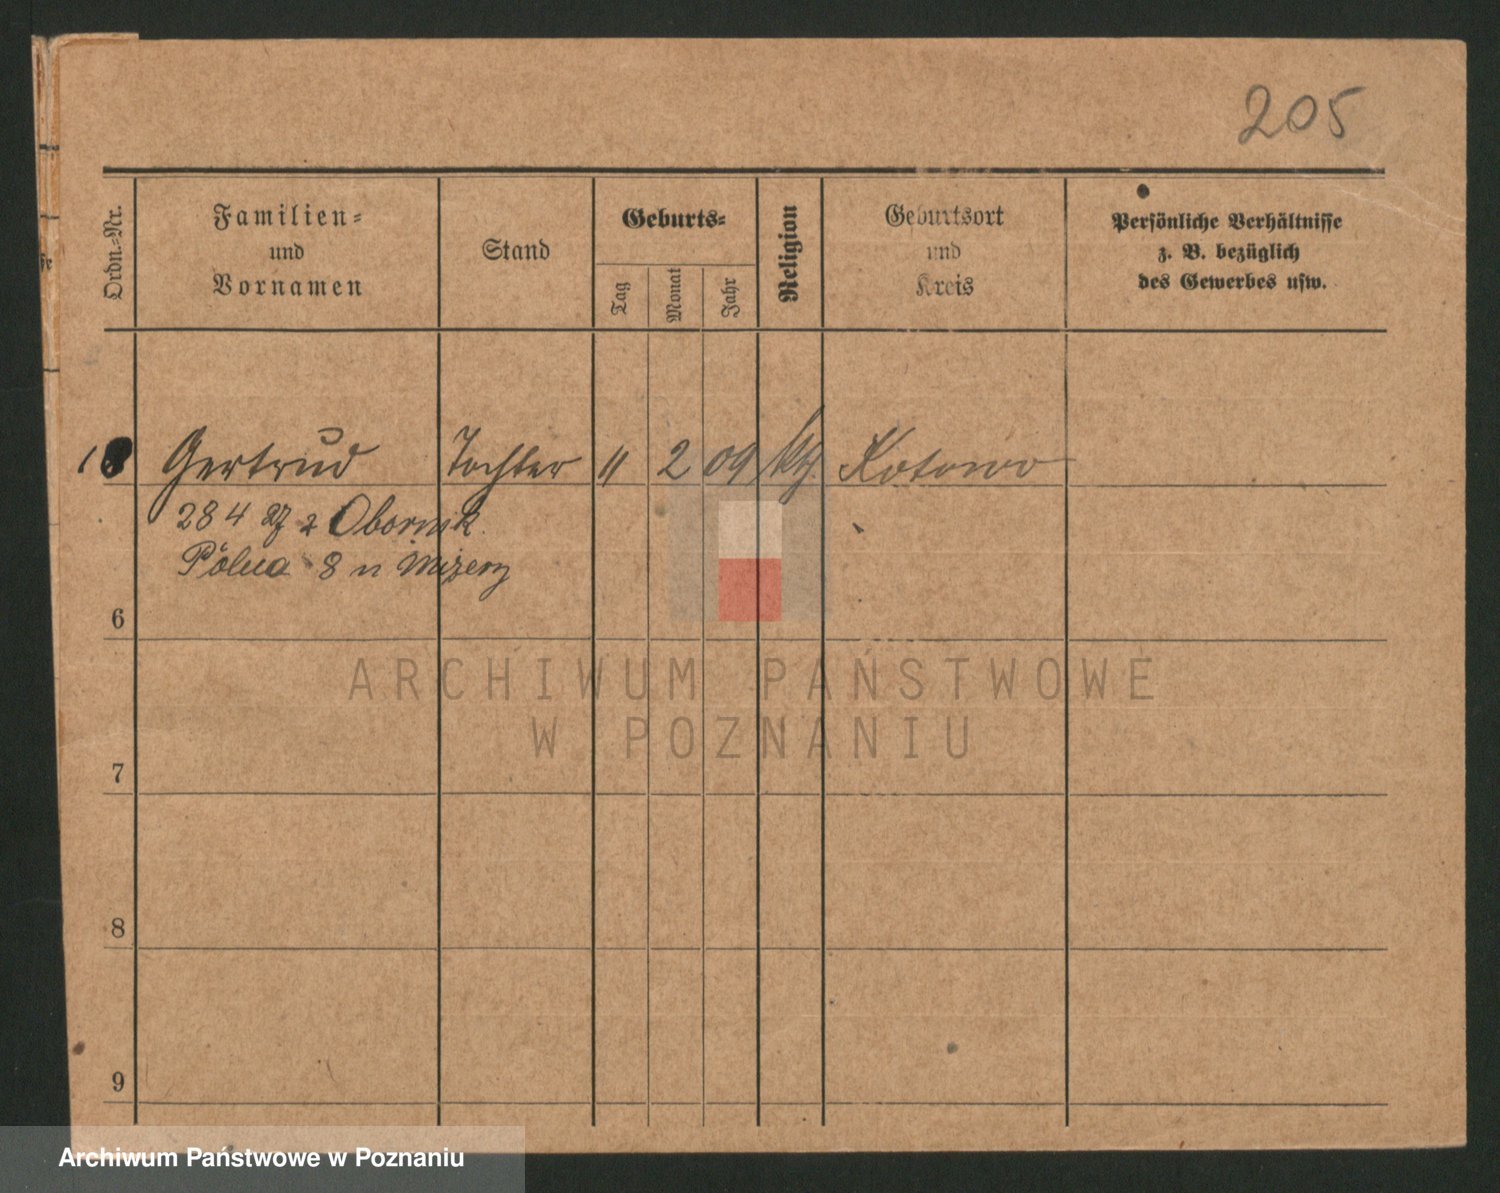 205
Ordn.-Nr.
Familien-
und
Vornamen
Stand
Geburts-
Tag
Monat
Jahr
Religion
Geburtsort
und
Kreis
Persönliche Verhältnisse
z. B. bezüglich
des Gewerbes usw.
Gertrud Tochter 11 2 09 kth. Kotowo
28 4 27 z Obornik.
Polna 8 u Mizery
6
ARCHIWUM PAŃSTWOWE
W POZNANIU
7
8
9
Archiwum Państwowe w Poznaniu